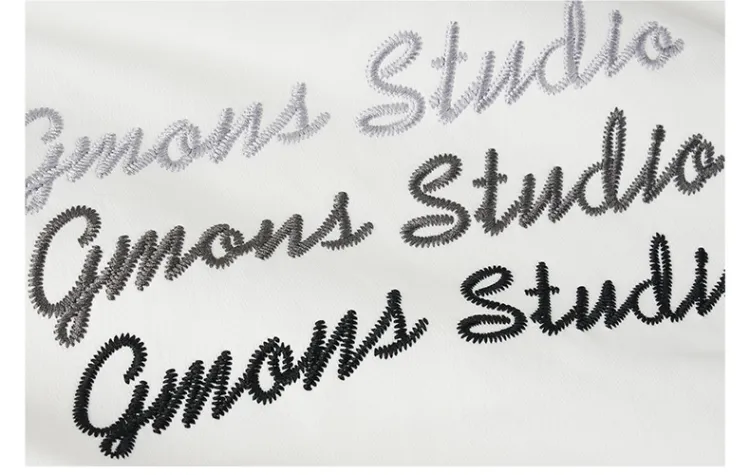 Gmons Studio
Gmons Studio
Gmons Studi